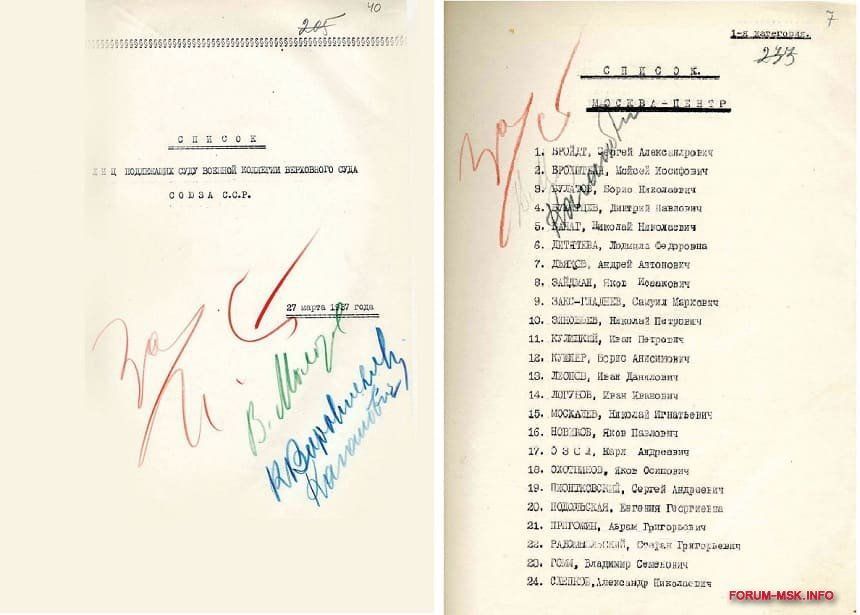 205
40
СПИСОК
ЛИЦ ПОДЛЕЖАЩИХ СУДУ ВОЕННОЙ КОЛЛЕГИИ ВЕРХОВНОГО СУДА
СОЮЗА С.С.Р.
27 марта 1937 года
За
В. Молотов
К Ворошилов
Каганович
7
1-я категория.
233
СПИСОК.
МОСКВА-ЦЕНТР
За
Каганович
1. БРОЙДТ, Сергей Александрович
2. Моисей Иосифович
3. БУЛАТОВ, Борис Николаевич
4. Дмитрий Павлович
5. КАНАГ, Николай Николаевич
6. ДИТЯТЕВА, Людмила Федоровна
7. ДЬЯКОВ, Андрей Антонович
8. ЗАЙДМАН, Яков Исаакович
9. ЗАКС-ГЛАДНЕВ, Самуил Маркович
10. ЗИНОВЬЕВ, Николай Петрович
11. КУЛИЦКИЙ, Иван Петрович
12. КУШНЕР, Борис Анисимович
13. ЛЕОНОВ, Иван Данилович
14. ЛОГУНОВ, Иван Иванович
15. МОСКАЛЕВ, Николай Игнатьевич
16. НОВИКОВ, Яков Павлович
17. ОЗОЛ, Карл Андреевич
18. ОХОТНИКОВ, Яков Осипович
19. ПИОНТКОВСКИЙ, Сергей Андреевич
20. ПОДОЛЬСКАЯ, Евгения Георгиевна
21. ПРИГОЖИН, Абрам Григорьевич
22. Стефан Григорьевич
23. Владимир Семенович
24. СЛЕПКОВ,Александр Николаевич
FORUM-MSK.INFO